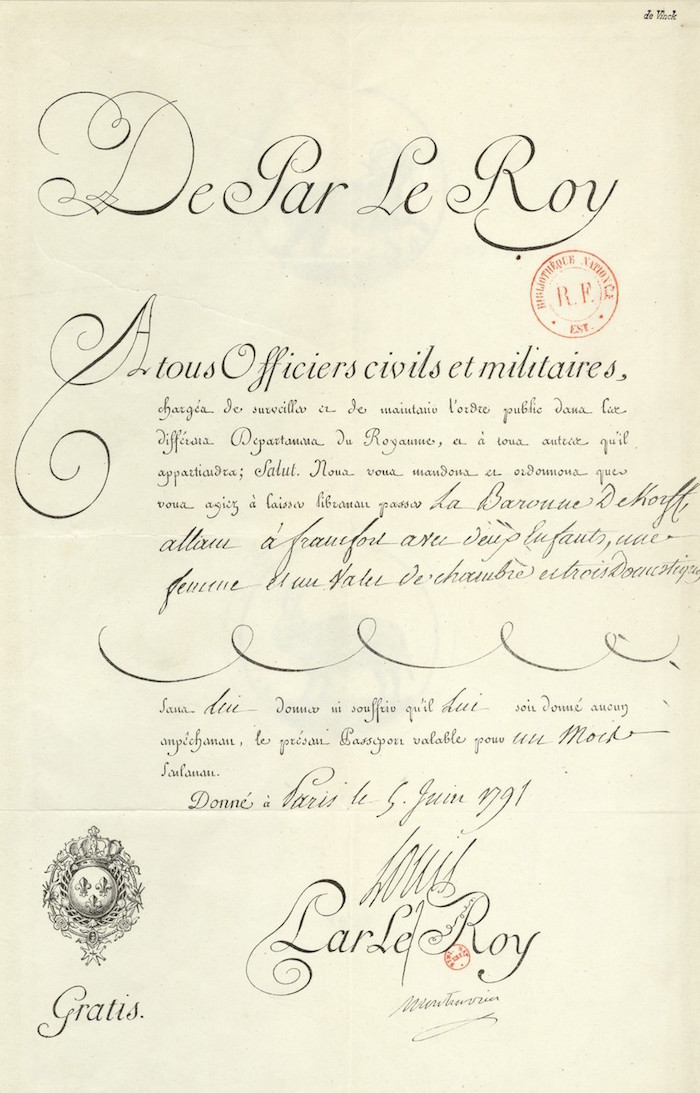 de Vinck
De Par Le Roy
BIBLIOTHÈQUE NATIONLE
R.F.
EST.
A tous Officiers civils et militaires,
chargés de surveiller et de maintenir l'ordre public dans les
différens Départemens du Royaume, et à tous autres qu'il
appartiendra; Salut. Nous vous mandons et ordonnons que
vous ayiez à laisser librement passer La Baronne De Korff,
allant à francfort avec deux Enfants, une
femme et un Valet de chambre et trois Domestiques
sans lui donner ni souffrir qu'il Lui soit donné aucun
empêchement, le présent Passeport valable pour un Mois
seulement.
Donné à Paris le 5. Juin 1791
Louis
Par Le Roy
Montmorin
Gratis.